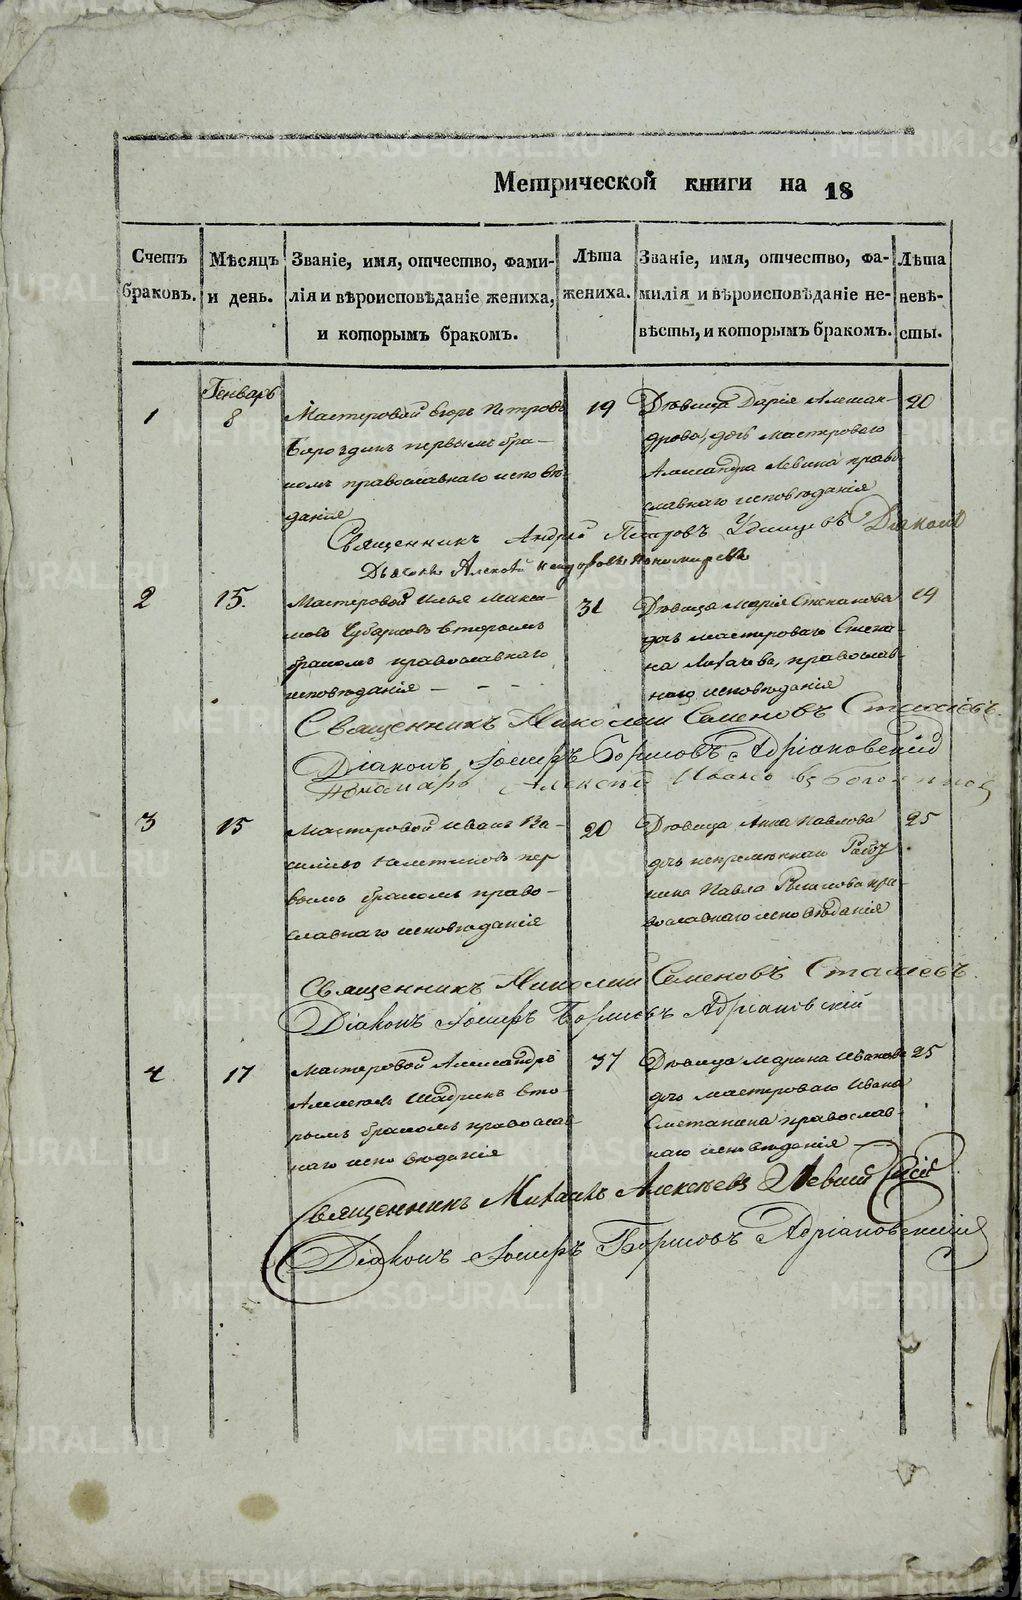 Метрической книги на 18
Счетъ браковъ.
Мѣсяцъ и день.
Званіе, имя, отчество, фами-
лія и вѣроисповѣданіе жениха,
и которымъ бракомъ.
Лѣта
жениха.
Званіе, имя, отчество, фа-
милія и вѣроисповѣданіе не-
вѣсты, и которымъ бракомъ.
Лѣта
невѣ-
сты.
Генварь
1
8
Мастеровой Егоръ Петровъ
первымъ бра-
комъ православнаго исповѣ-
данія
19
Дѣвица Дарія Алексан-
дрова, дочь мастероваго
Александра Левина право
славнаго исповѣданія
20
Священникъ Андрей Петровъ Удинцевъ
Дьяконъ Алексѣй
2
15.
Мастеровой Илья Макси-
мовъ вторымъ
бракомъ православнаго
исповѣданія
31
Дѣвица Марія Степанова
дочь мастероваго Степа-
на православ-
наго исповѣданія
19
Священникъ Николай Семеновъ
Діаконъ Іосифъ Борисовъ Адріановскій
Пономарь Алексѣй
3
15
Мастеровой Иванъ Ва-
сильевъ пер
вымъ бракомъ право-
славнаго исповѣданія
20
Дѣвица Анна Павлова
дочь непремѣннаго
Павла пра-
вославнаго исповѣданія
25
Священникъ Николай Семеновъ
Діаконъ Іосифъ Борисовъ Адріановскій
4
17
Мастеровой Александръ
Шадринъ вто-
рымъ бракомъ православ-
наго исповѣданія
37
Дѣвица Марина Иванова
дочь мастероваго Ивана
Сметанина православ-
наго исповѣданія
25
Священникъ Михаилъ Алексѣевъ Левицкій
Діаконъ Іосифъ Борисовъ Адріановскій
METRIKI.GASO-URAL.RU